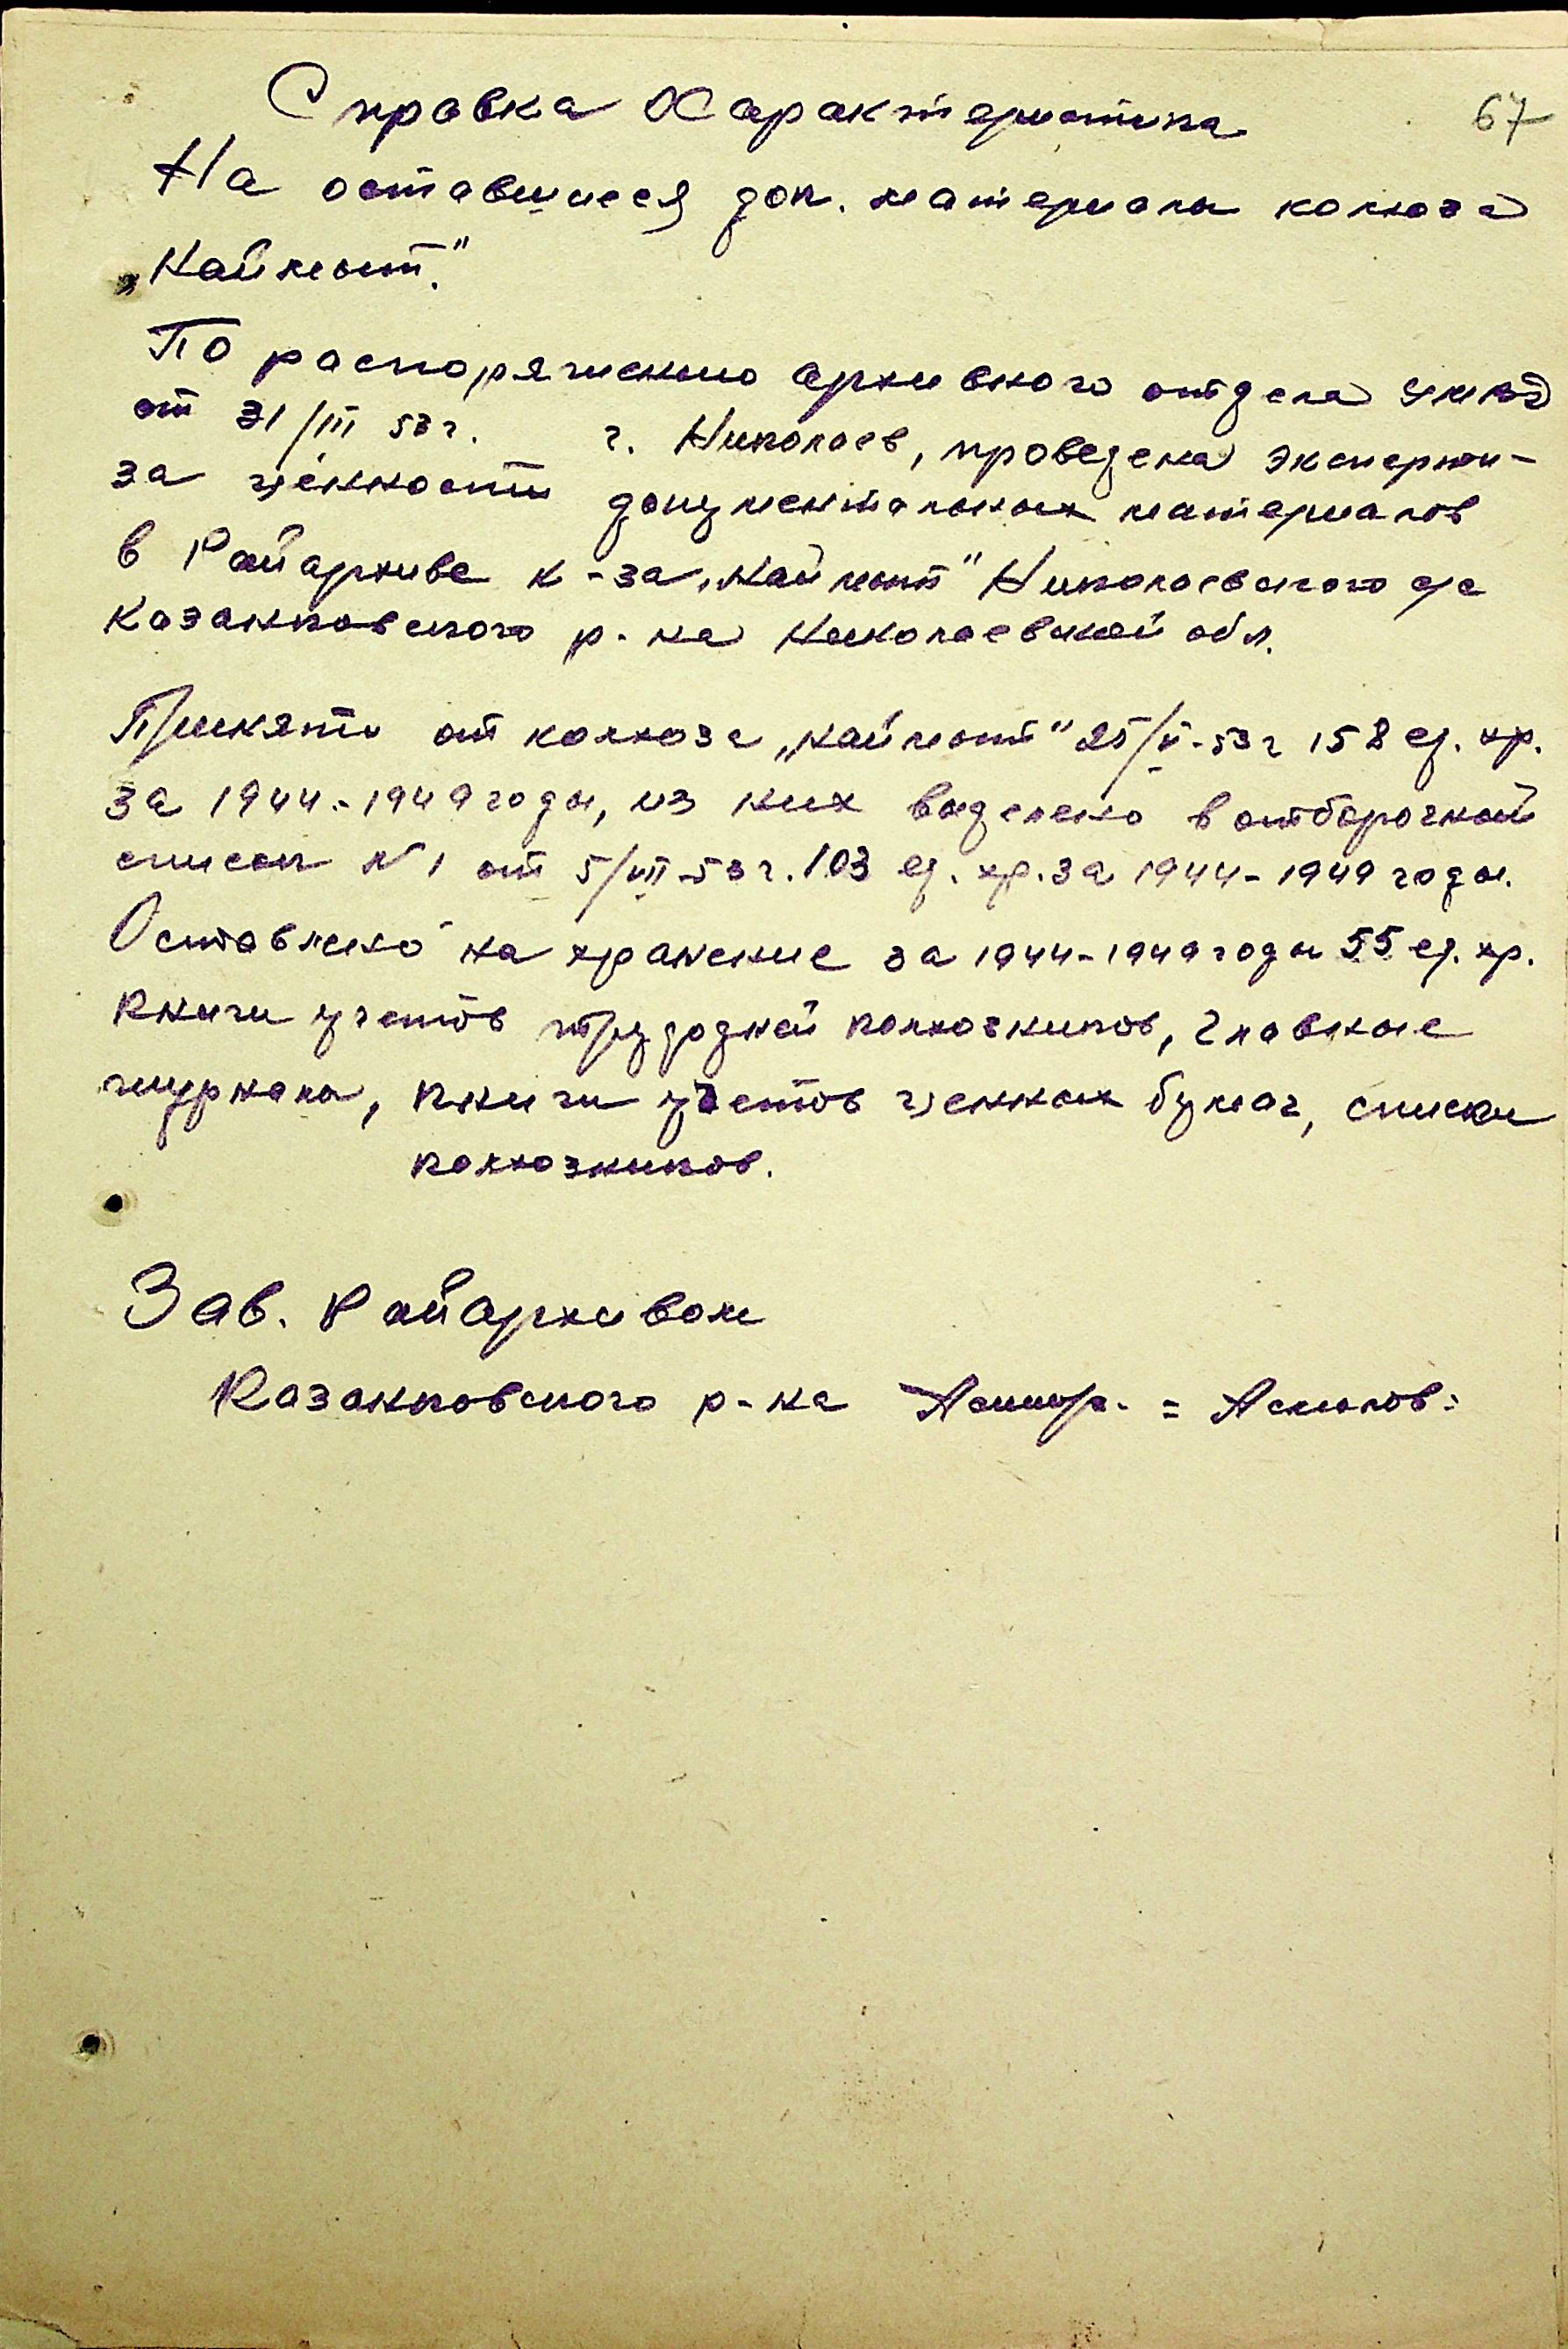 Справка Характеристика
67
На оставшиеся док. материалы колхоза
„Найлебт."
По распоряжению архивного отдела УМВД
от 31/III 53 г. г. Николаев, проведена экспертиза
за ценности документальных материалов
в Райархиве к-за „Найлебт" Николаевского с/с
Казанковского р-на Николаевской обл.
Принято от колхоза „Найлебт" 25/V-53 г 158 ед. хр.
за 1944-1949 годы, из них выделено в отборочной
список № 1 от 5/VII-53 г. 103 ед. хр. за 1944-1949 годы.
Оставлено на хранение за 1944-1949 годы 55 ед. хр.
Книги учетов трудодней колхозников, главные
журналы, книги учетов ценных бумаг, списки
колхозников.
Зав. Райархивом
Казанковского р-на